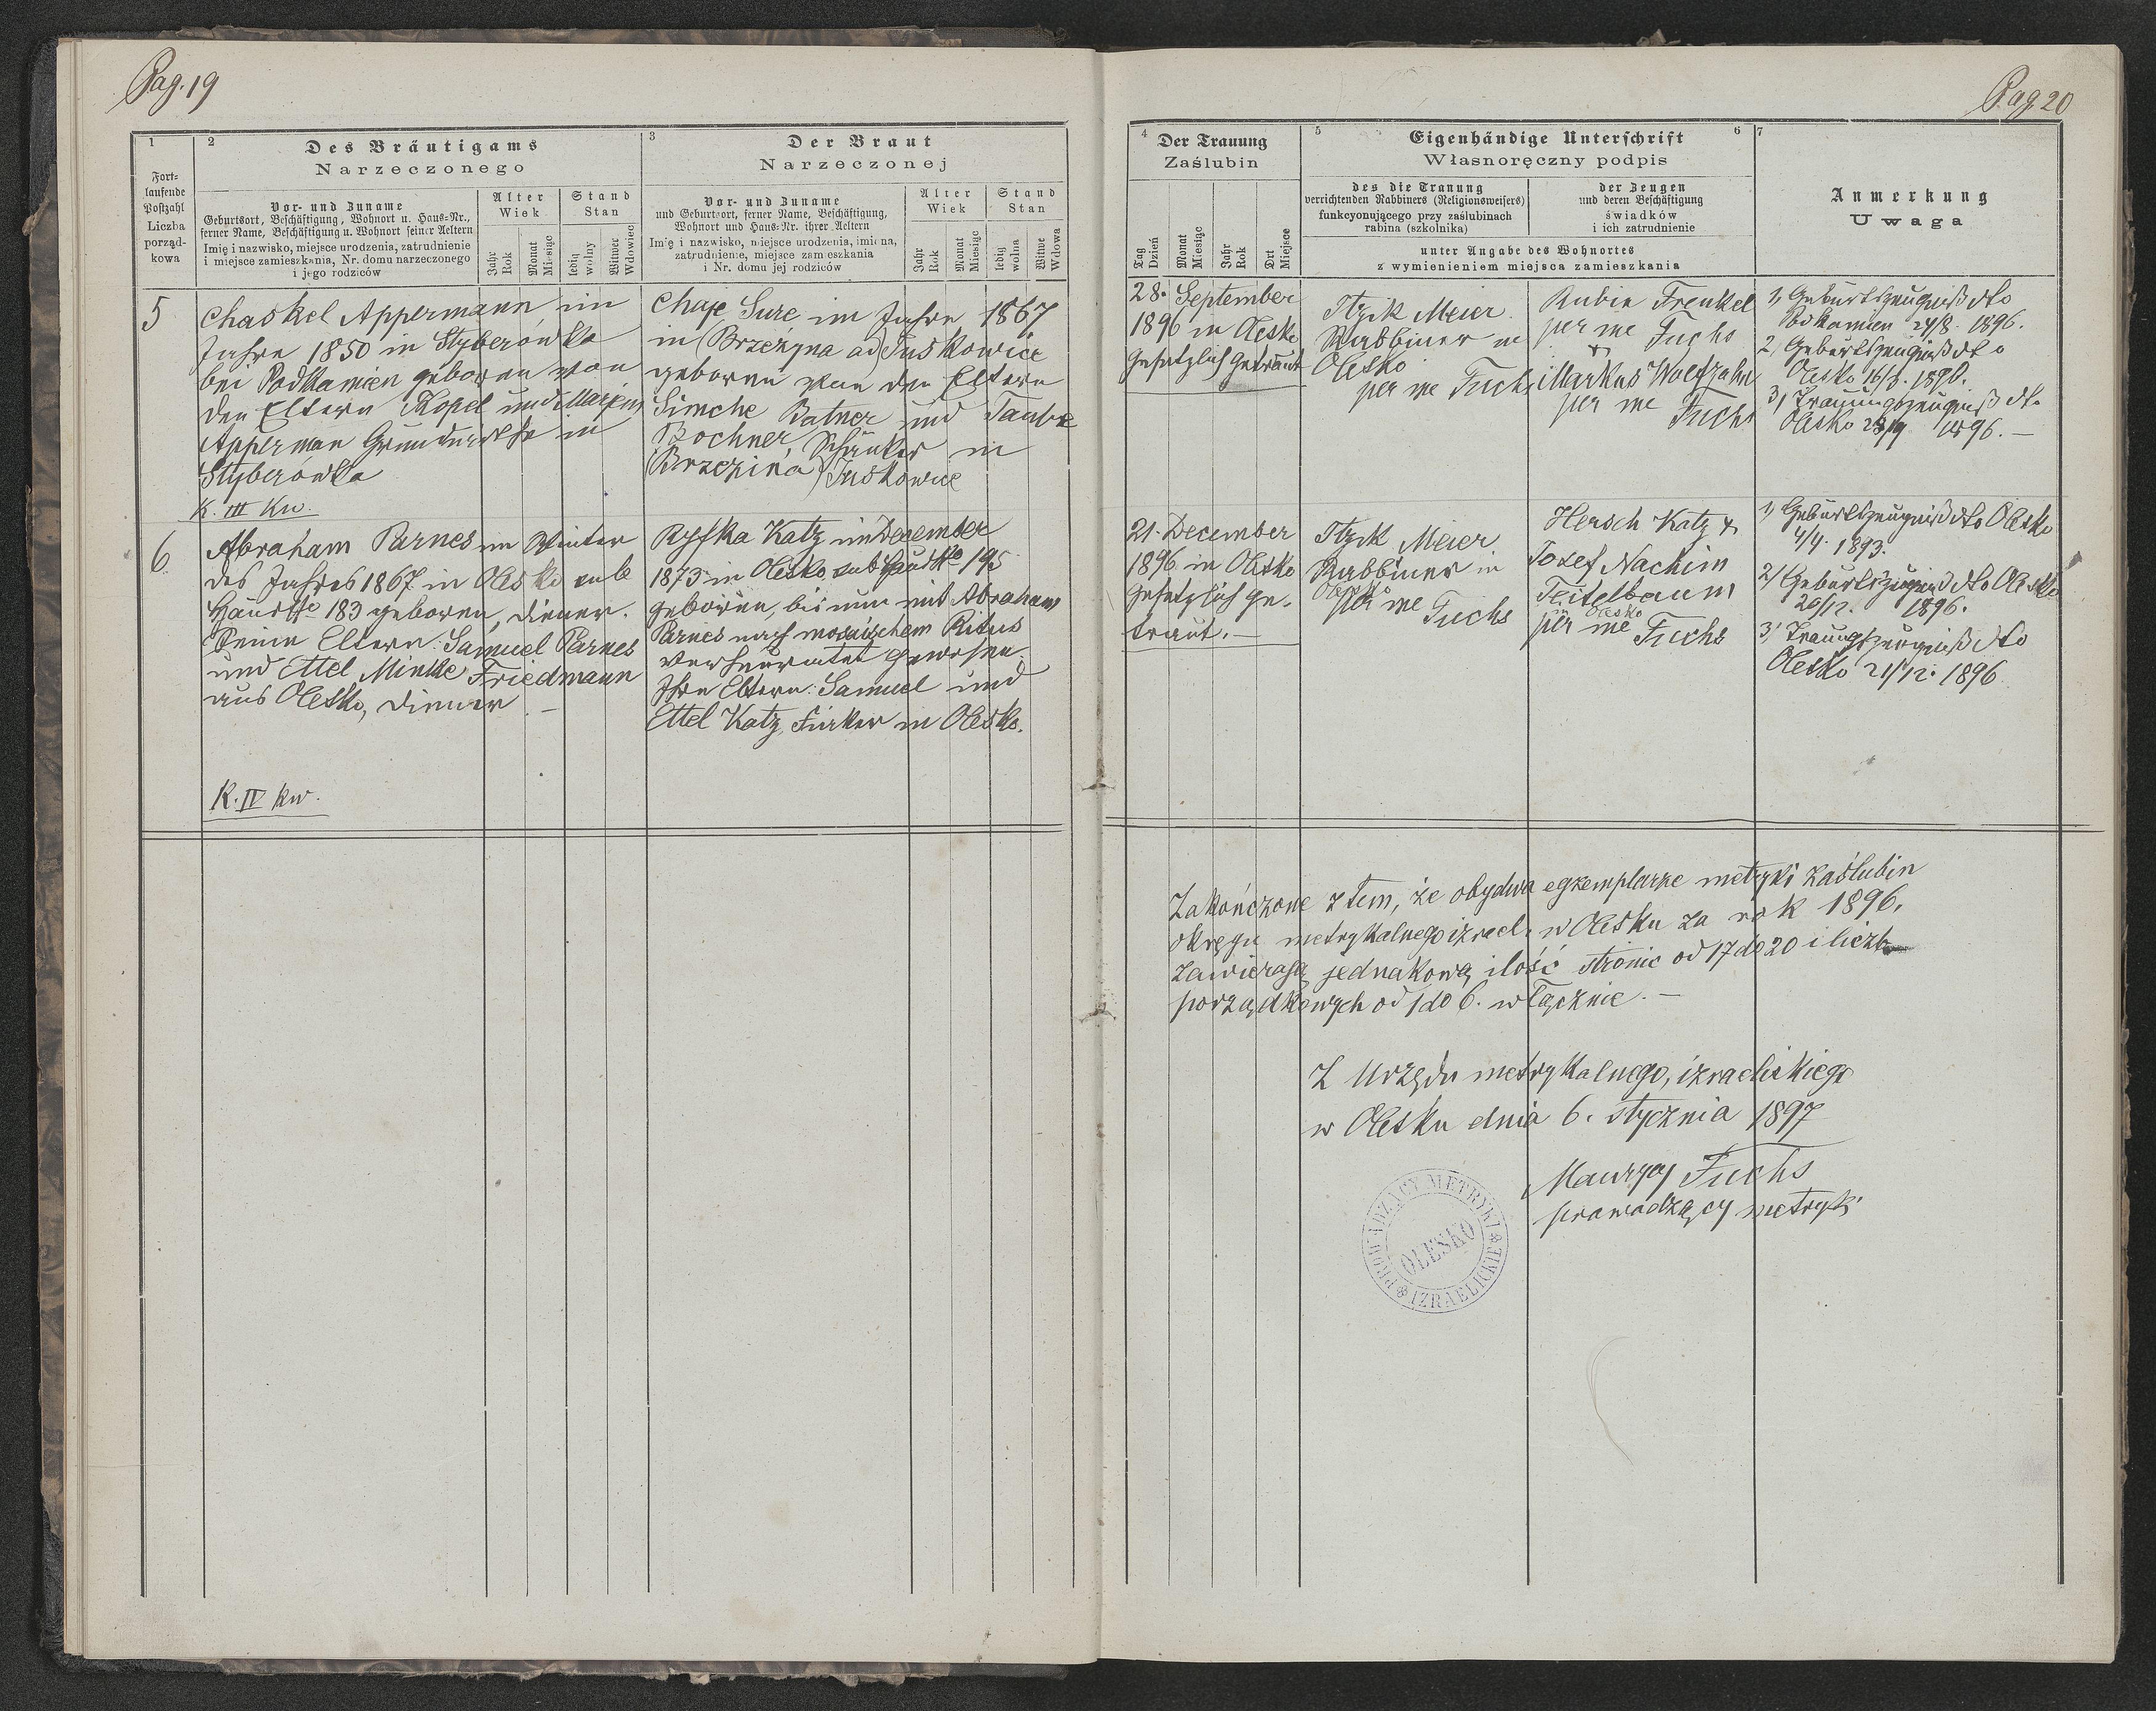 Pag. 19
1
Fort-
laufende
Postzahl
Liczba
porząd-
kowa
2
Des Bräutigams
Narzeczonego
Vor- und Zuname
Geburtsort, Beschäftigung, Wohnort u. Haus-Nr.,
ferner Name, Beschäftigung u. Wohnort seiner Aeltern
Imię i nazwisko, miejsce urodzenia, zatrudnienie
i miejsce zamieszkania, Nr. domu narzeczonego
i jego rodziców
Alter
Wiek
Jahr
Rok
Monat
Miesiąc
Stand
Stan
ledig
wolny
Witwer
Wdowiec
3
Der Braut
Narzeczonej
Vor- und Zuname
und Geburtsort, ferner Name, Beschäftigung,
Wohnort und Haus-Nr. ihrer Aeltern
Imię i nazwisko, miejsce urodzenia, imiona,
zatrudnienie, miejsce zamieszkania
i Nr. domu jej rodziców
Alter
Wiek
Jahr
Rok
Monat
Miesiąc
Stand
Stan
ledig
wolna
Witwe
Wdowa
5
Chaskel Appermann im
Jahre 1850 in Styberówka
bei Podkamien geboren von
den Eltern Kopel und
Apperman in
Styberowka
K. III Kw.
Chaje Sure im Jahre 1867
in (Brzezyna ad) Juskowice
geboren von den Eltern
Simche Batner und Taube
Bochner, Schänker in
(Brzezina) Juskowice
6.
Abraham Parnes im Winter
des Jahres 1867 in Olesko sub
Haus No 183 geboren, Diener.
Seine Eltern: Samuel Parnes
und Ettel Mintze Friedmann
aus Olesko, Diener –
K. IV kw.
Ryfka Katz im Dezember
1873 in Olesko, sub Haus No 195
geboren, bis nun mit Abraham
Parnes nach mosaischem Ritus
verheuratet gewesen.
Ihre Eltern: Samuel und
Ettel Katz, in Olesko.
Pag 20
4
Der Trauung
Zaślubin
Tag
Dzień
Monat
Miesiąc
Jahr
Rok
Ort
Miejsce
5
Eigenhändige Unterschrift
Własnoręczny podpis
6
des die Trauung
verrichtenden Rabbiners (Religionsweisers)
funkcyonującego przy zaślubinach
rabina (szkolnika)
der Zeugen
und deren Beschäftigung
świadków
i ich zatrudnienie
unter Angabe des Wohnortes
z wymienieniem miejsca zamieszkania
7
Anmerkung
Uwaga
28. September
1896 in Olesko
gesetzlich getraut
Itzik Meier
Rabbiner in
Olesko
per me Fuchs
Rubin Frenkel
per me Fuchs
Markus Wolfzahn
per me
Fuchs
1, Geburtszeugniß dto
Podkamien 24/8. 1896.
2, Geburtszeugniß dto
Olesko 16/8. 1896.
3, Trauungszeugniß dto
Olesko 28/9 1896. –
21. December
1896 in Olesko
gesetzlich ge-
traut. –
Itzik Meier
Rabbiner in
Olesko
per me Fuchs
Hersch Katz &
Josef Nachim
Teitelbaum
in Olesko
per me Fuchs
1, Geburtszeugniß dto Olesko
4/4. 1893.
2, Geburtszeugniß dto Olesko
20/12. 1896.
3, Trauungszeugniß dto
Olesko 21/12. 1896
Zakończone z tem, że obydwa egzemplarze metryki zaślubin
okręgu metrykalnego izrael. w Olesku za rok 1896.
zawierają jednakową ilość stronic od 17 do 20 i liczb
porządkowych od 1 do 6. włącznie. –
Z Urzędu metrykalnego, izraelickiego
w Olesku dnia 6. stycznia 1897
Maurycy Fuchs
prowadzący metryki
PROWADZĄCY METRYKI
IZRAELICKIE
OLESKO